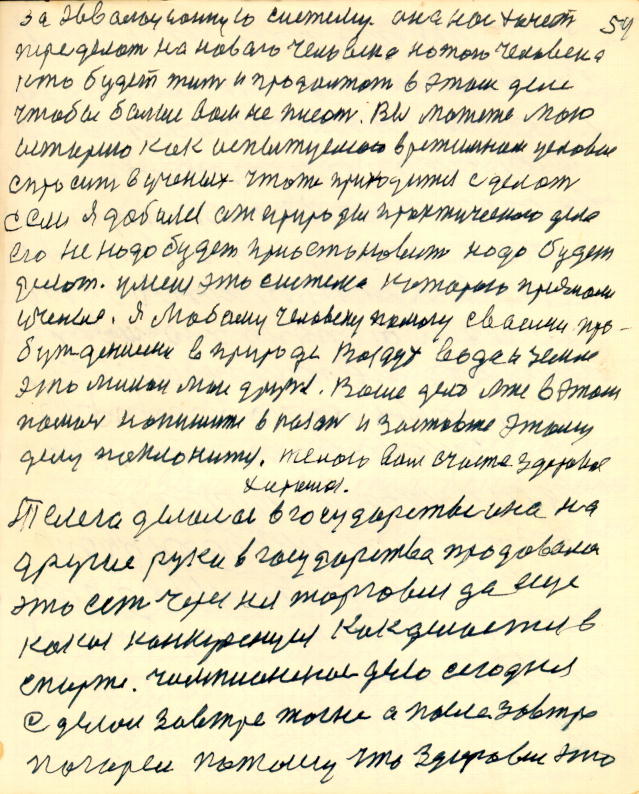 за эвалоционную систему. она нас хочет 59
переделот на новаго человека на того человека
кто будет жит и продолжат в этом деле
чтобы болие вам не писат. Вы можете мою
историю как испытуемаго
спросит в ученых что то приходится сделат
если я добился от природы практического дела
его не надо будет приостановит надо будет
делот. умея это система которою признали
ученыя. Я Любому человеку помогу своими про-
буждениями в природе Воздух вода и земля
это милои мои друзя. Ваше дело мне в этом
помоч напишите и заставте этому
делу поклонится. желаю вам счаста здоровя
хорошаго.
Телега делалас в государстве она на
другие руки в государства продовалас
это ест через них торговля да еще
какая конкуренция как делается в
спорте. чемпионское дело сегодня
сделал завтре тоже а после завтра
погорел потому что здоровие это